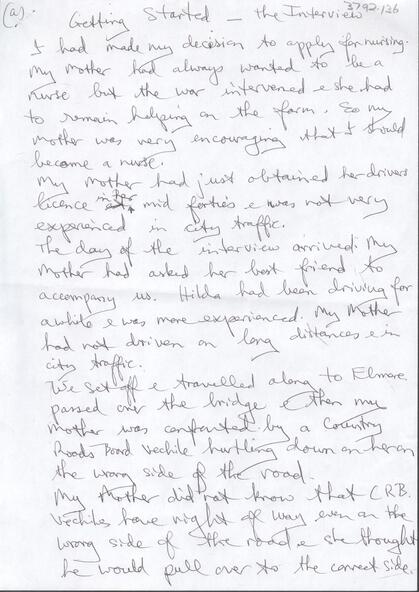 (a).
3792-136
Getting Started - the Interview
I had made my decision to apply for nursing.
My mother had always wanted to be a
nurse but the war intervened & she had
to remain helping on the farm. So my
mother was very encouraging that I should
become a nurse.
My mother had just obtained her drivers
licence in her mid forties & was not very
experienced in city traffic.
The day of the interview arrived. My
Mother had asked her best friend to
accompany us. Hilda had been driving for
awhile & was more experienced. My Mother
had not driven on long distances & in
city traffic.
We set off & travelled along to Elmore
passed over the bridge & then my
mother was confronted by a Country
Roads Board vechile hurtling down on her on
the wrong side of the road.
My Mother did not know that C.R.B.
vechiles have right of way even on the
wrong side of the road & she thought
he would pull over to the correct side.